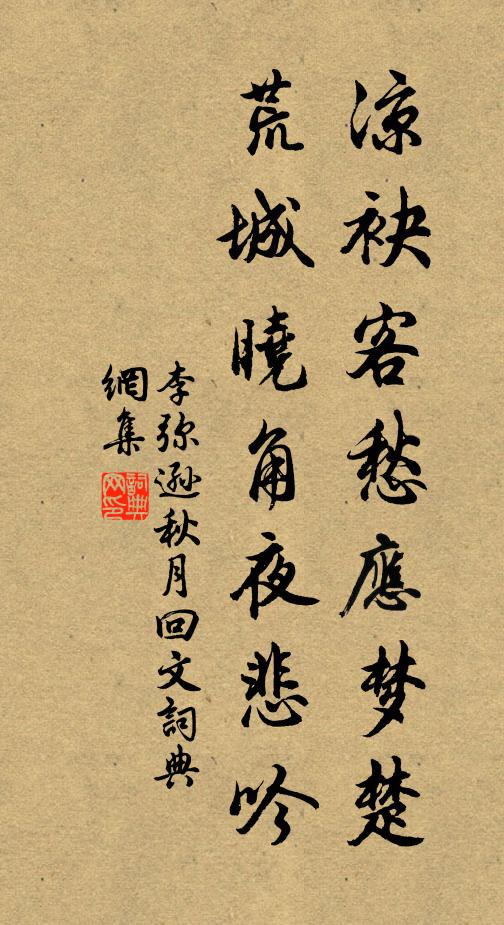 凉袂客愁應梦楚
荒城曉角夜悲吟
李弥遜秋月回文詞典
網集
詞典网印